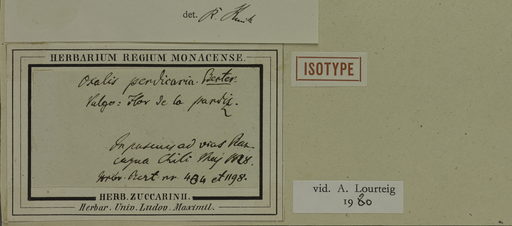 det.
HERBARIUM REGIUM MONACENSE.
Oxalis perdicaria. Berter.
Vulgo: Flor de la perdiz.
In pascuis ad vias Ran-
cagua Chili Maj 1828.
Herb. Bert nr 434 et 1198.
HERB. ZUCCARINII.
Herbar. Univ. Ludov. Maximil.
ISOTYPE
vid. A. Lourteig
1980